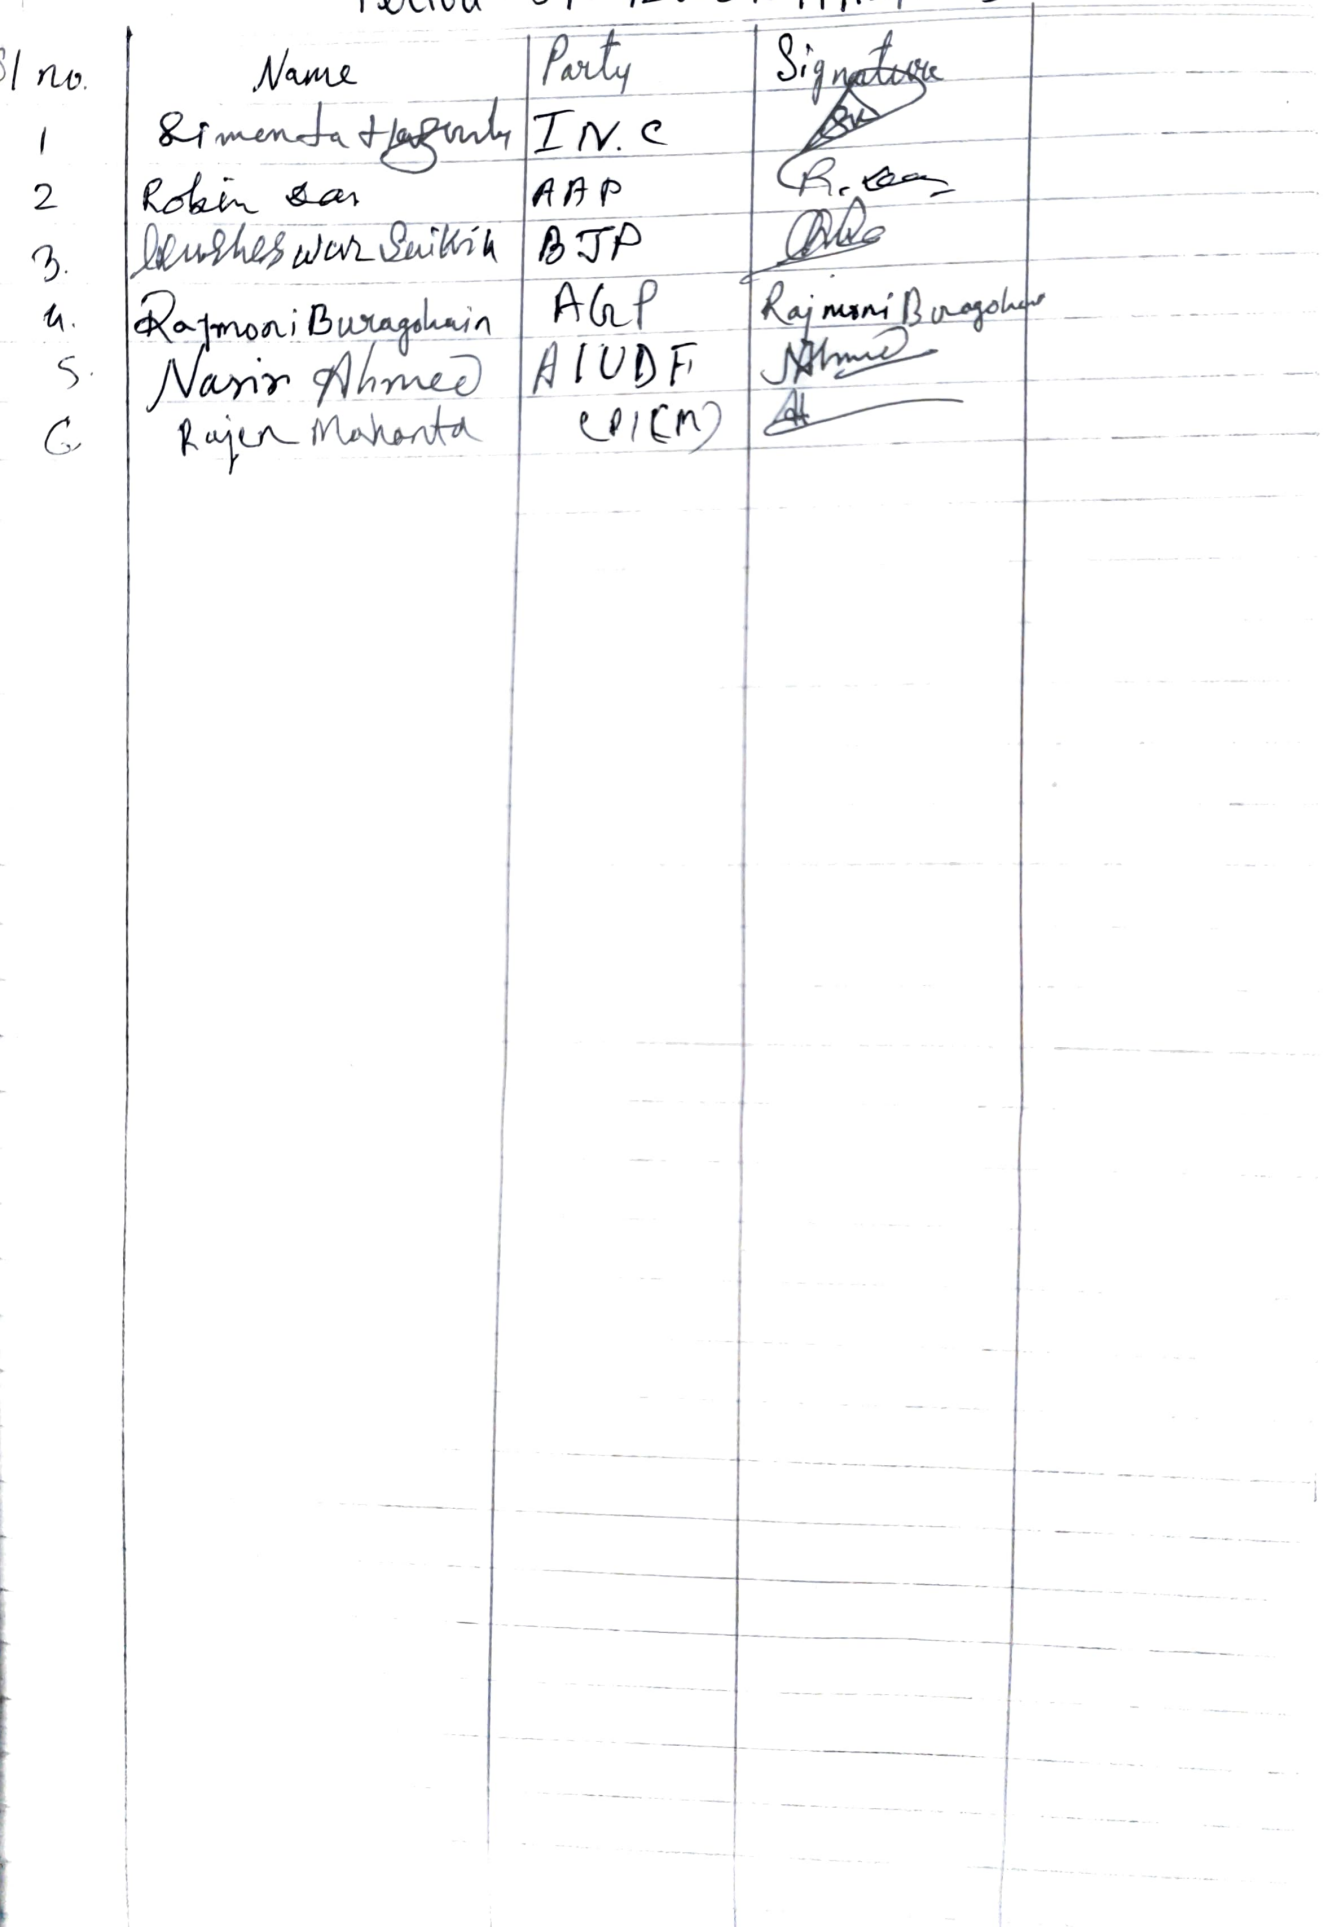 Sl no. Name Party Signature
1 I N. C
2 Robin Das AAP R. Das
3. Saikia BJP
4. Rajmoni Buragohain AGP Rajmoni Buragohain
5. Nasir Ahmed AIUDF NAhmed
6 Rajen Mahanta CPI(M)